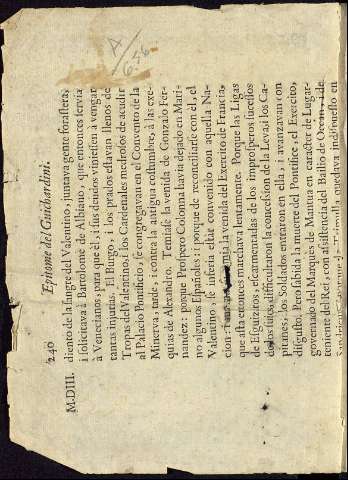 A/656
246 Epitome del Guichardini.
M.DIII.
diento de la sangre del Valentino, juntava gente forastera,
i solicitava à Bartolomè de Albiano, que entonces servia
à Venecianos, para que èl, i sus deudos viniessen à vengar
tantas injurias. El Burgo, i los prados estavan llenos de
Tropas del Valentino, i los Cardenales medrosos de acudir
al Palacio Pontificio, se congregavan en el Convento de la
Minerva, tarde, i contra la antigua costumbre, à las exe-
quias de Alexandro. Temiase la venida de Gonzalo Fer-
nandez: porque Prospero Colonna havia dejado en Mari-
no algunos Españoles: i porque de reconciliarse con èl, el
Valentino, se inferia estàr convenido con aquella Na-
cion. Temiase mas la venida del Exercito de Francia,
que asta entonces marchava lentamente. Porque las Ligas
de Esguizaros, escarmentadas de los improsperos sucessos
de los suyos, dificultaron la concesion de la Leva, i los Ca-
pitanes, los Soldados entraron en ella, i avanzavan con
disgusto. Pero sabida la muerte del Pontifice, el Exercito,
governado del Marquès de Mantua en caracter de Lugar-
teniente del Rei, con asistencia del Bailio de Occan, i de